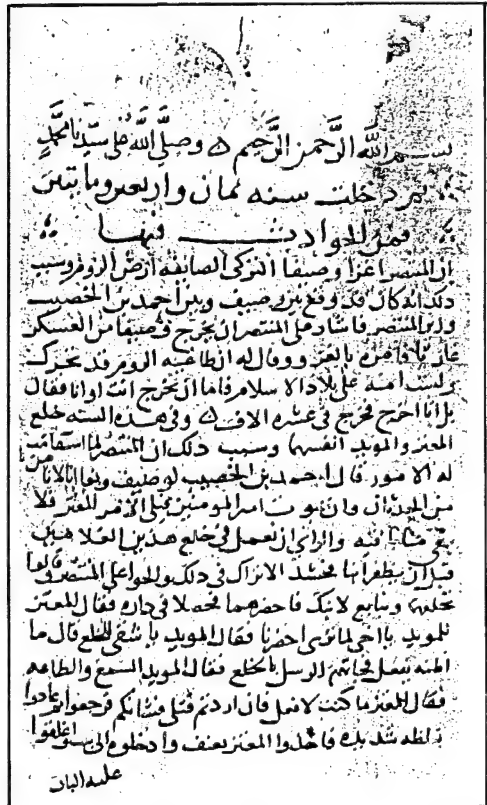 بسم الله الرحمن الرحيم ۞ وصلى الله على سيدنا محمد
ثم دخلت سنه ثمان واربعين وما يتين
فمن الحوادث فيها
ان المنتصر اغزا وصيفا التركى الصائفه ارض الروم وسبب
ذلك انه كان قد وقع بين وصيف وبين احمد بن الخصيب
وزير المنتصر فاشار على المنتصر ان يخرج وصيفا من العسكر
غازيا فامره بالغزو وقال له ان طاغيه الروم قد تحرك
ولست امنه على بلاد الاسلام فاما ان تخرج انت او انا فقال
بل انا اخرج فخرج فى عشره الاف ۞ وفى هذه السنه خلع
المعتز والمويد انفسهما وسبب ذلك ان المنتصر لما استقامت
له الامور قال احمد بن الخصيب لوصيف وبغا انا لا نامن
من الحدثان وان يموت امير المومنين فيلى الامر المعتز فلا
يبقى منا باقيه والراى ان نعمل فى خلع هذين الغلامين
قبل ان يظفرا بنا فجد الاتراك فى ذلك والحوا على المنتصر وقالوا
نخلعهما ونبايع لابنك فاحضرهما فجعلا فى داره فقال المعتز
للمويد يا اخى لم ترى احضرنا فقال المويد يا شقى للخلع قال ما
اظنه يفعل فجاتهم الرسل بالخلع فقال المويد السمع والطاعه
فقال المعتز ما كنت لافعل فان اردتم قتلى فشانكم فرجعوا ثم عادوا
بغلظه شديده فاخذوا المعتز بعنف وادخلوه الى بيت واغلقوا
عليه الباب